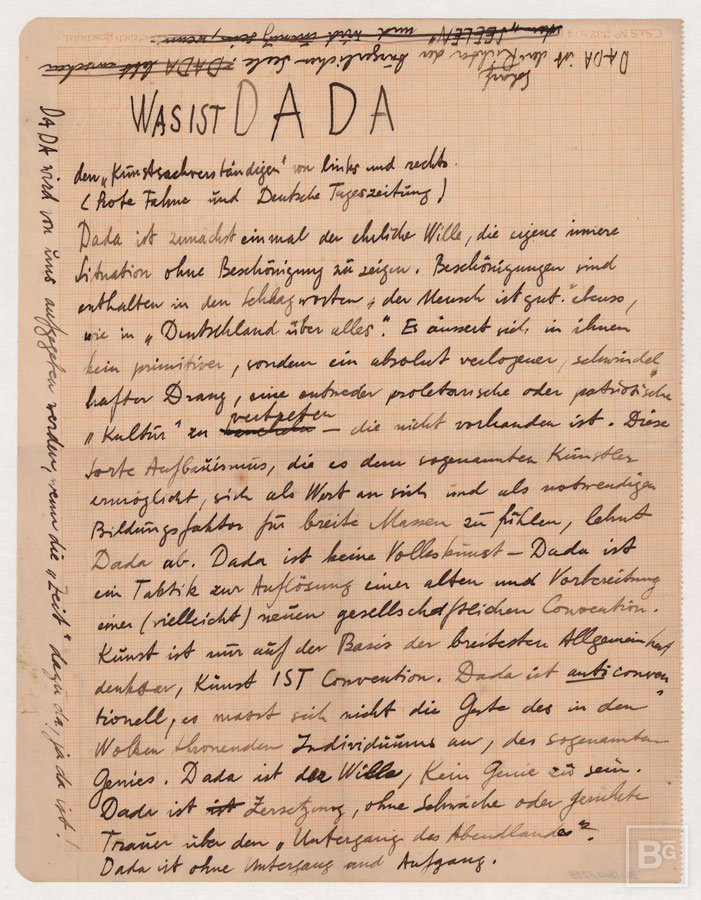 DADA ist der Scharf Richter der bürgerlichen Seele. DADA lebt zwischen
"SEELEN" und wird
WAS IST DADA
den „Kunstsachverständigen" von links und rechts.
(Rote Fahne und Deutsche Tageszeitung)
Dada ist zunächst einmal der ehrliche Wille, die eigene innere
Situation ohne Beschönigung zu zeigen. Beschönigungen sind
enthalten in den Schlagworten „der Mensch ist gut" ebenso,
wie in „Deutschland über alles". Es äussert sich in ihnen
kein primitiver, sondern ein absolut verlogener, schwindel
hafter Drang, eine entweder proletarische oder patriotische
„Kultur" zu vertreten – die nicht vorhanden ist. Diese
Sorte Aufbauismus, die es dem sogenannten Künstler
ermöglicht, sich als Wert an sich und als notwendigen
Bildungsfaktor für breite Massen zu fühlen, lehnt
Dada ab. Dada ist keine Volkskunst – Dada ist
ein Taktik zur Auflösung einer alten und Vorbereitung
einer (vielleicht) neuen gesellschaftlichen Convention.
Kunst ist nur auf der Basis der breitesten Allgemeinheit
denkbar, Kunst IST Convention. Dada ist anticonven
tionell, es masst sich nicht die Geste des in den
Wolken thronenden Individuums an, des sogenannten
Genies. Dada ist der Wille, kein Genie zu sein.
Dada ist ist Zersetzung, ohne Schwäche oder gerührte
Trauer über den „Untergang des Abendlandes".
Dada ist ohne Untergang und Aufgang.
DADA wird von uns aufgegeben werden, wenn die „Zeit" dazu da, ja da ist!
BG